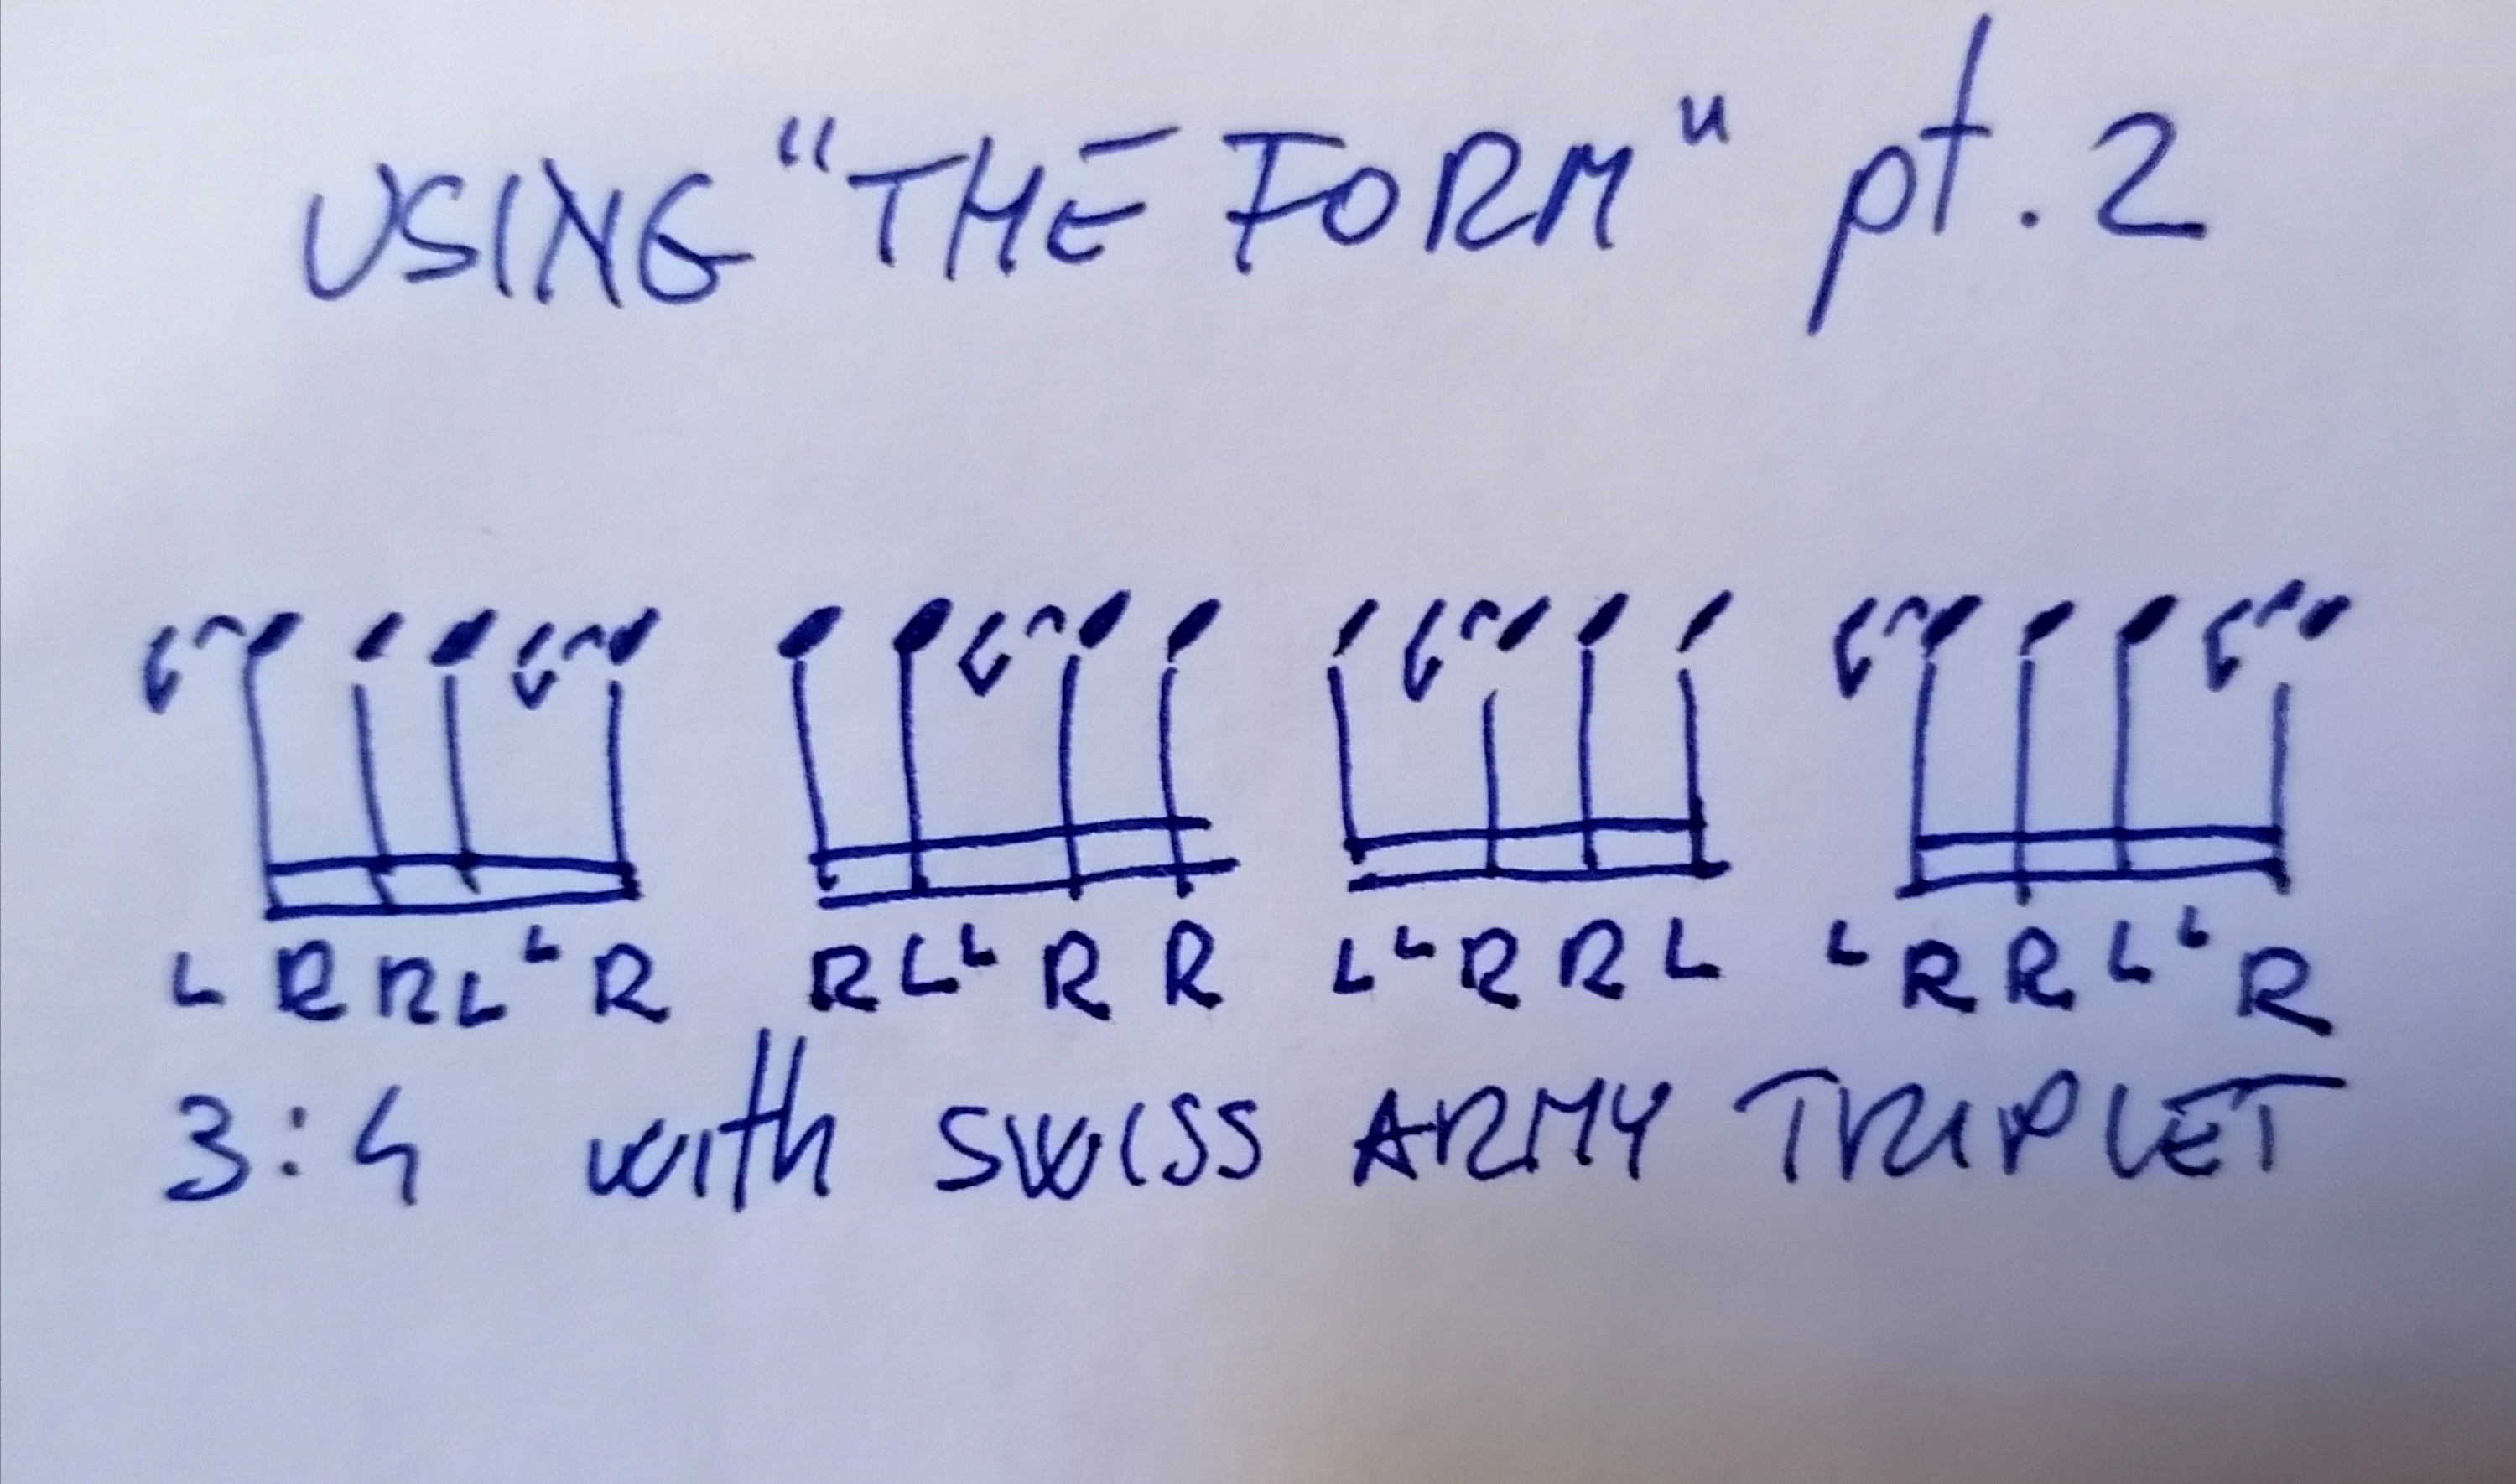 USING "THE FORM" pt. 2
L R R L L R R L L R R L L R R L L R R L L R
3:4 with SWISS ARMY TRIPLET